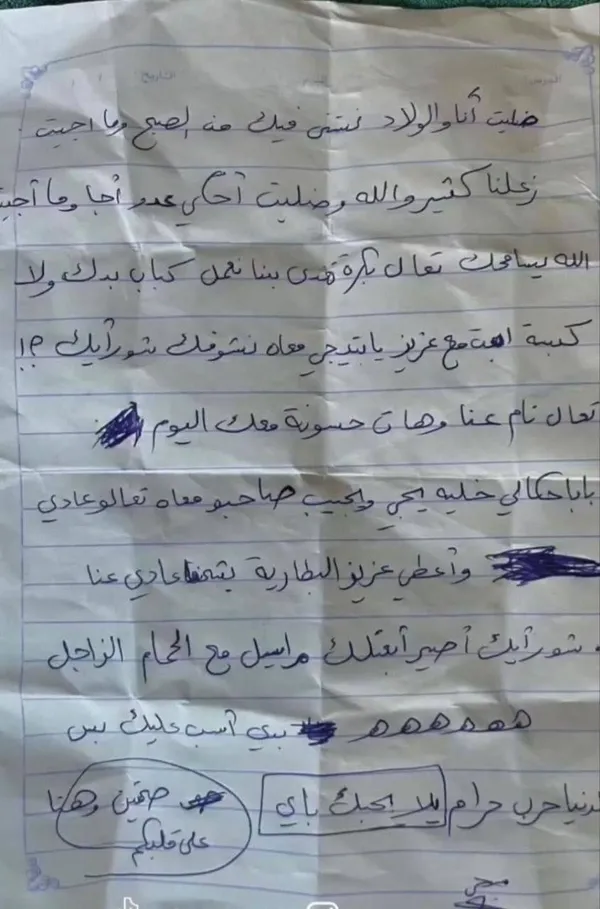 ضليت أنا والولاد نستنى فيك من الصبح وما اجيت
زعلنا كثير والله وضليت أحكي عدو أجا وما أجيت
الله يسامحك تعال بكرة تغدى بنا نعمل كباب بدك ولا
كبسة ابعت مع عزيز يا بتيجي معاه نشوفك شو رأيك ؟!
تعال نام عنا وهات حسونة معك اليوم
بابا حكالي خليه يجي ويجيب صاحبو معاه تعالو عادي
وأعطي عزيز البطارية بشحنها عادي عنا
شو رأيك أصير أبعتلك مراسيل مع الحمام الزاجل
هههههه بدي أسب عليك بس
لدنيا حرب حرام يلا بحبك باي
صحتين وهنا
على قلبكم